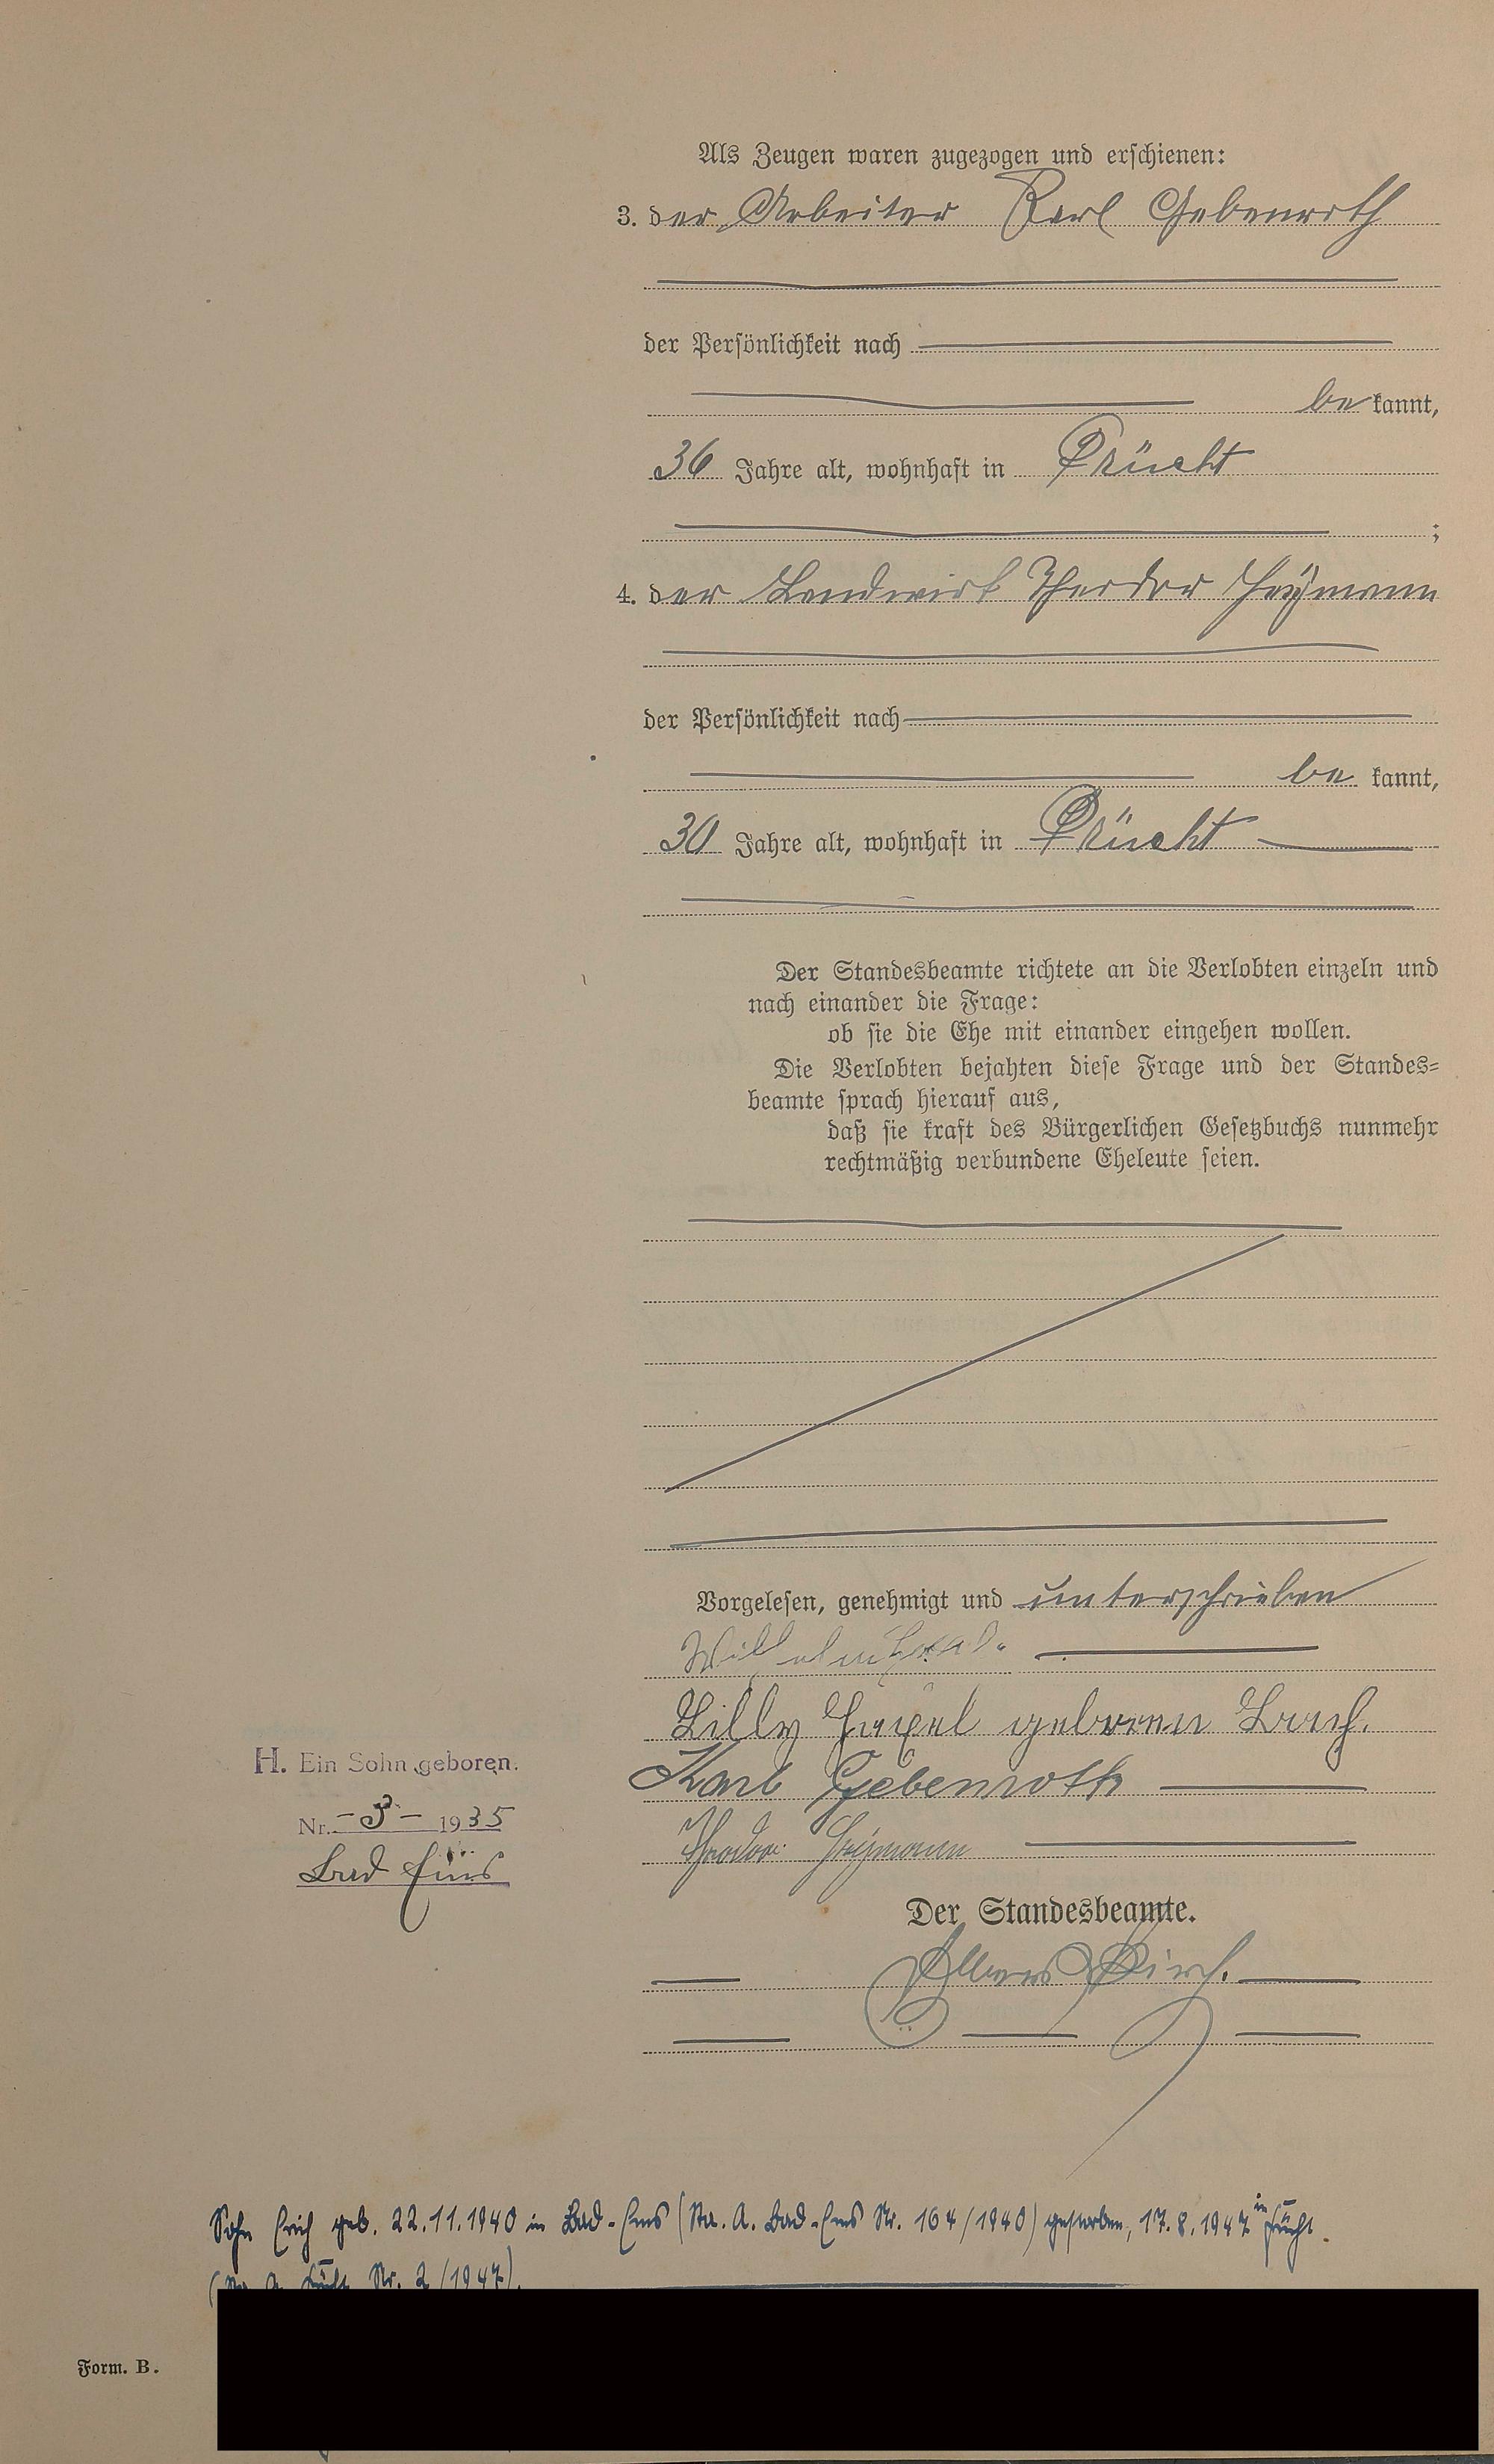 Als Zeugen waren zugezogen und erschienen:
3. der Arbeiter Karl Gebenroth
der Persönlichkeit nach
be kannt,
36 Jahre alt, wohnhaft in Frücht
;
4. der Landwirt Theodor Heymann
der Persönlichkeit nach
be kannt,
30 Jahre alt, wohnhaft in Frücht
Der Standesbeamte richtete an die Verlobten einzeln und
nach einander die Frage:
ob sie die Ehe mit einander eingehen wollen.
Die Verlobten bejahten diese Frage und der Standes-
beamte sprach hierauf aus,
daß sie kraft des Bürgerlichen Gesetzbuchs nunmehr
rechtmäßig verbundene Eheleute seien.
Vorgelesen, genehmigt und unterschrieben
Wilhelm
Lilly geboren
Karl Gebenroth
Theodor Heymann
H. Ein Sohn geboren.
Nr. - 3 - 1935
Bad Ems
Der Standesbeamte.
Sohn Erich geb. 22.11.1940 in Bad-Ems (Sta. A. Bad-Ems Nr. 164/1940) gestorben, 17.8.1947 in Frücht.
(Sta. A. Frücht Nr. 2/1947).
Form. B.